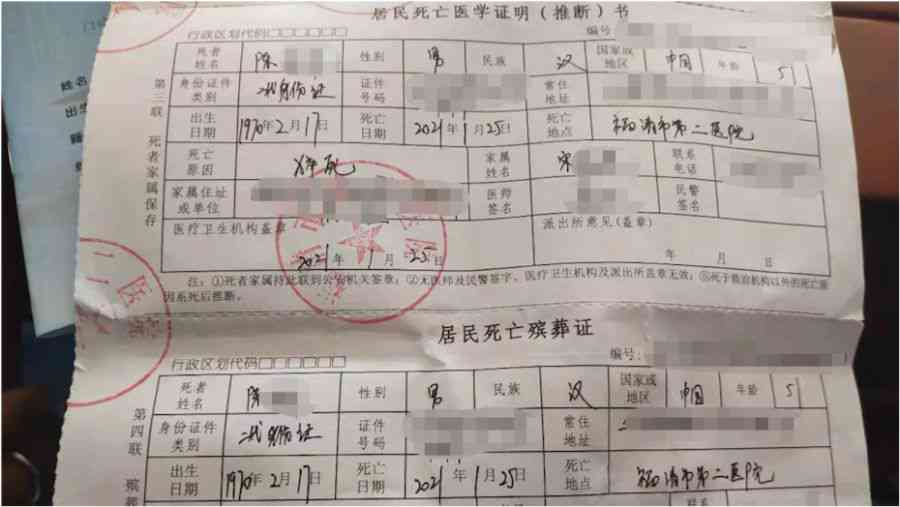 居民死亡医学证明（推断）书
行政区划代码□□□□□□ 编号
死者姓名 陈 性别 男 民族 汉 国家或地区 中国 年龄 51
身份证件类别 二代身份证 证件号码 常住地址
出生日期 1970年2月17日 死亡日期 2021年1月25日 死亡地点 福清市第二医院
死亡原因 猝死 家属姓名 宋 联系电话
家属住址或单位 医师签名 民警签名
医疗卫生机构盖章 派出所意见（盖章）
2021年1月25日 年 月 日
注：①死者家属持此联到公安机关签章；②无医师及民警签字、医疗卫生机构及派出所盖章无效；③死于救治机构以外的死亡原
因系死后推断。
第三联 死者家属保存
居民死亡殡葬证
行政区划代码□□□□□□ 编号：
死者姓名 陈 性别 男 民族 汉 国家或地区 中国 年龄 5
身份证件类别 二代身份证 证件号码 常住地址
出生日期 1970年2月17日 死亡日期 2021年1月25日 死亡地点 福清市第二医院
联系
第四联 殡葬
姓名
出生